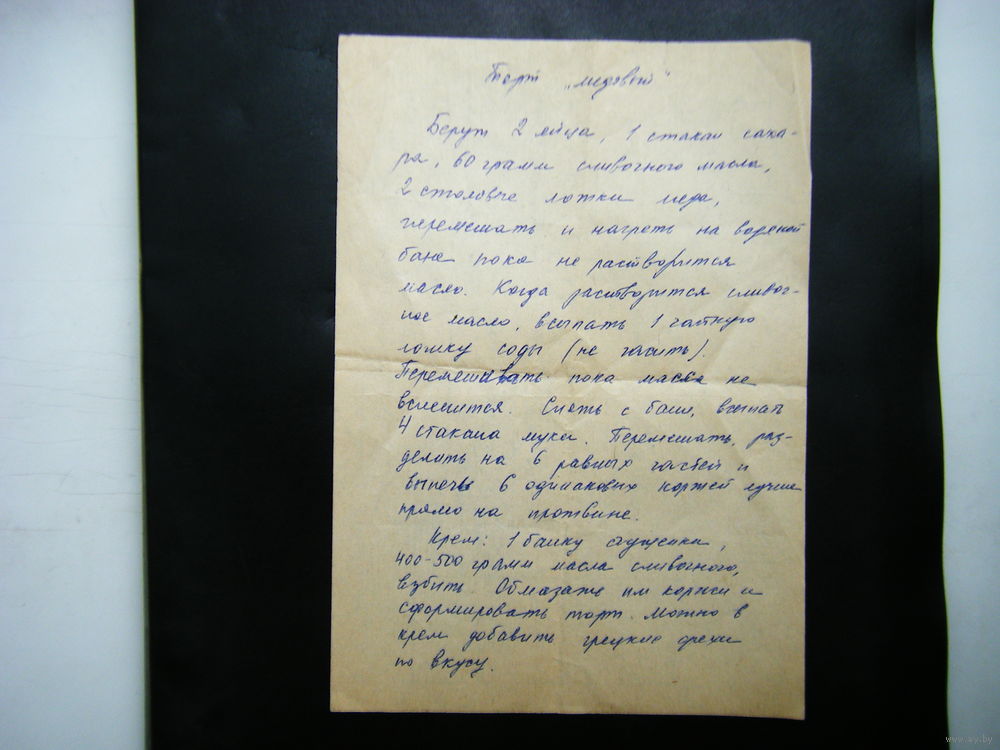 Торт „медовый"
Берут 2 яйца, 1 стакан саха-
ра, 60 грамм сливочного масла,
2 столовые ложки меда,
перемешать и нагреть на водяной
бане пока не растворится
масло. Когда растворится сливоч-
ное масло, всыпать 1 чайную
ложку соды (не гасить).
Перемешивать пока масса не
вспенится. Снять с бани, всыпать
4 стакана муки. Перемешать, раз-
делить на 6 равных частей и
выпечь 6 одинаковых коржей лучше
прямо на противне.
Крем: 1 банку сгущенки,
400-500 грамм масла сливочного,
взбить. Обмазать им коржи и
сформировать торт. Можно в
крем добавить грецкие орехи
по вкусу.
www.ay.by